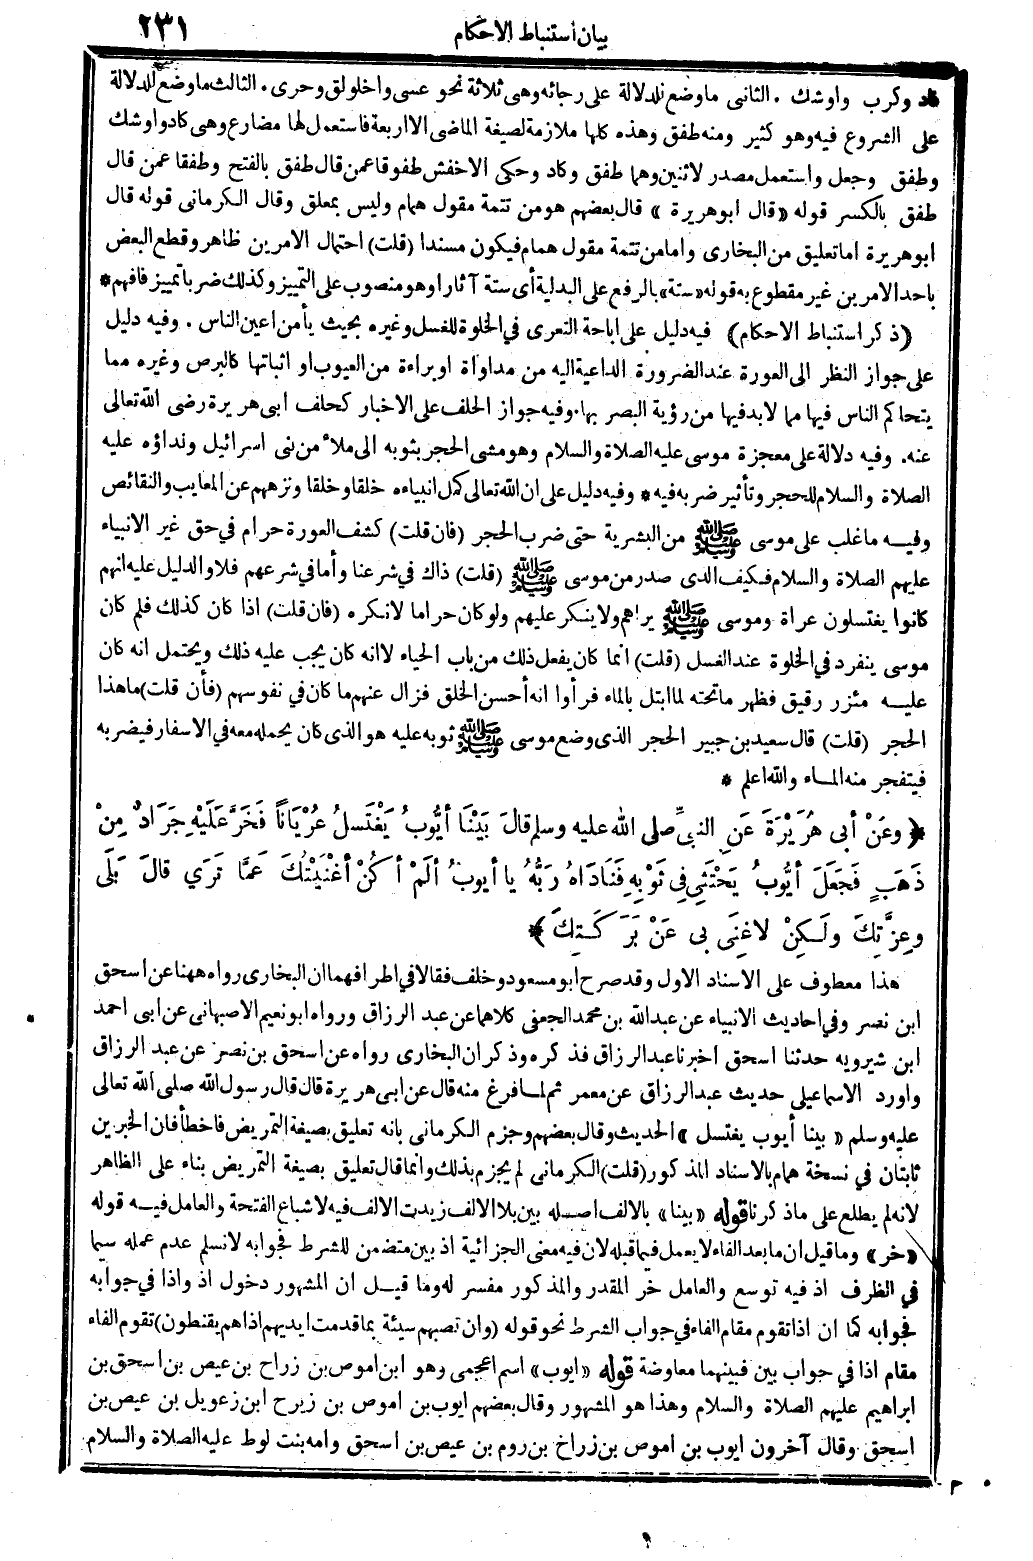 بيان أستنباط الاحكام
٢٣١
كاد وكرب واوشك . الثانى ما وضع للدلالة على رجائه وهى ثلاثة نحو عسى واخلولق وحرى . الثالث ما وضع للدلالة
على الشروع فيه وهو كثير ومنه طفق وهذه كلها ملازمة لصيغة الماضى الا اربعة فاستعمل لها مضارع وهى كاد واوشك
وطفق وجعل واستعمل مصدر لاثنين وهما طفق وكاد وحكى الاخفش طفوقا عمن قال طفق بالفتح وطفقا عمن قال
طفق بالكسر قوله «قال ابو هريرة» قال بعضهم هو من تتمة مقول همام وليس بمعلق وقال الكرمانى قوله قال
ابو هريرة اما تعليق من البخارى واما من تتمة مقول همام فيكون مسندا (قلت) احتمال الامرين ظاهر وقطع البعض
باحد الامرين غير مقطوع به قوله «ستة» بالرفع على البدلية أى ستة آثار او هو منصوب على التمييز وكذلك ضربا تمييز فافهم *
(ذكر استنباط الاحكام) فيه دليل على اباحة التعرى في الخلوة للغسل وغيره بحيث يأمن اعين الناس . وفيه دليل
على جواز النظر الى العورة عند الضرورة الداعية اليه من مداواة او براءة من العيوب او اثباتها كالبرص وغيره مما
يتحاكم الناس فيها مما لابد فيها من رؤية البصر بها . وفيه جواز الحلف على الاخبار كحلف ابى هريرة رضى الله تعالى
عنه . وفيه دلالة على معجزة موسى عليه الصلاة والسلام وهو مشى الحجر بثوبه الى ملأ من بنى اسرائيل ونداؤه عليه
الصلاة والسلام للحجر وتأثير ضربه فيه * وفيه دليل على ان الله تعالى كمل انبياءه خلقا وخلقا ونزههم عن المعايب والنقائص
وفيه ما غلب على موسى ﷺ من البشرية حتى ضرب الحجر (فان قلت) كشف العورة حرام في حق غير الانبياء
عليهم الصلاة والسلام فكيف الذى صدر من موسى ﷺ (قلت) ذاك في شرعنا وأما في شرعهم فلا والدليل عليه انهم
كانوا يغتسلون عراة وموسى ﷺ يراهم ولا ينكر عليهم ولو كان حراما لانكره (فان قلت) اذا كان كذلك فلم كان
موسى ينفرد في الخلوة عند الغسل (قلت) انما كان يفعل ذلك من باب الحياء لا انه كان يجب عليه ذلك ويحتمل انه كان
عليه مئزر رقيق فظهر ما تحته لما ابتل بالماء فرأوا انه أحسن الخلق فزال عنهم ما كان في نفوسهم (فأن قلت) ما هذا
الحجر (قلت) قال سعيد بن جبير الحجر الذى وضع موسى ﷺ ثوبه عليه هو الذى كان يحمله معه في الاسفار فيضربه
فيتفجر منه الماء والله اعلم *
﴿ وعَنْ أبى هُرَيْرَةَ عَنِ النبىِّ صلى الله عليه وسلم قالَ بَيْنَا أيُّوبُ يَغْتَسلُ عُرْيَاناً فَخَرَّ عَلَيْهِ جَرَادٌ مِنْ
ذَهَبٍ فَجَعَلَ أيُّوبُ يَحْتَثِى فِى ثَوْبِهِ فَنَادَاهُ رَبُّهُ يا أيوبُ ألَمْ أكُنْ أغْنَيْتُكَ عَمَّا تَرَي قالَ بَلَى
وعِزَّتِكَ ولَكِنْ لاغِنَى بى عَنْ بَرَكَتِكَ * ﴾
هذا معطوف على الاسناد الاول وقد صرح ابو مسعود وخلف فقالا في اطرافهما ان البخارى رواه ههنا عن اسحق
ابن نصر وفي احاديث الانبياء عن عبدالله بن محمد الجعفى كلاهما عن عبد الرزاق ورواه ابو نعيم الاصبهانى عن ابى احمد
ابن شيرويه حدثنا اسحق اخبرنا عبدالرزاق فذكره وذكر ان البخارى رواه عن اسحق بن نصر عن عبد الرزاق
واورد الاسماعيلى حديث عبدالرزاق عن معمر ثم لما فرغ منه قال عن ابى هريرة قال قال رسول الله صلى الله تعالى
عليه وسلم «بينا أيوب يغتسل» الحديث وقال بعضهم وجزم الكرمانى بانه تعليق بصيغة التمريض فاخطأ فان الخبرين
ثابتان في نسخة همام بالاسناد المذكور (قلت) الكرمانى لم يجزم بذلك وانما قال تعليق بصيغة التمريض بناء على الظاهر
لانه لم يطلع على ما ذكرنا قوله «بينا» بالالف اصله بين بلا الالف زيدت الالف فيه لاشباع الفتحة والعامل فيه قوله
«خر» وما قيل ان ما بعد الفاء لا يعمل فيما قبله لان فيه معنى الجزائية اذ بين متضمن للشرط فجوابه لا نسلم عدم عمله سيما
في الظرف اذ فيه توسع والعامل خر المقدر والمذكور مفسر له وما قيل ان المشهور دخول اذ واذا في جوابه
فجوابه كما ان اذا تقوم مقام الفاء في جواب الشرط نحو قوله (وان تصبهم سيئة بما قدمت ايديهم اذا هم يقنطون) تقوم الفاء
مقام اذا في جواب بين فبينهما معاوضة قوله «ايوب» اسم اعجمى وهو ابن اموص بن زراح بن عيص بن اسحق بن
ابراهيم عليهم الصلاة والسلام وهذا هو المشهور وقال بعضهم ايوب بن اموص بن زيرح ابن زعويل بن عيص بن
اسحق وقال آخرون ايوب بن اموص بن زراخ بن روم بن عيص بن اسحق وامه بنت لوط عليه الصلاة والسلام